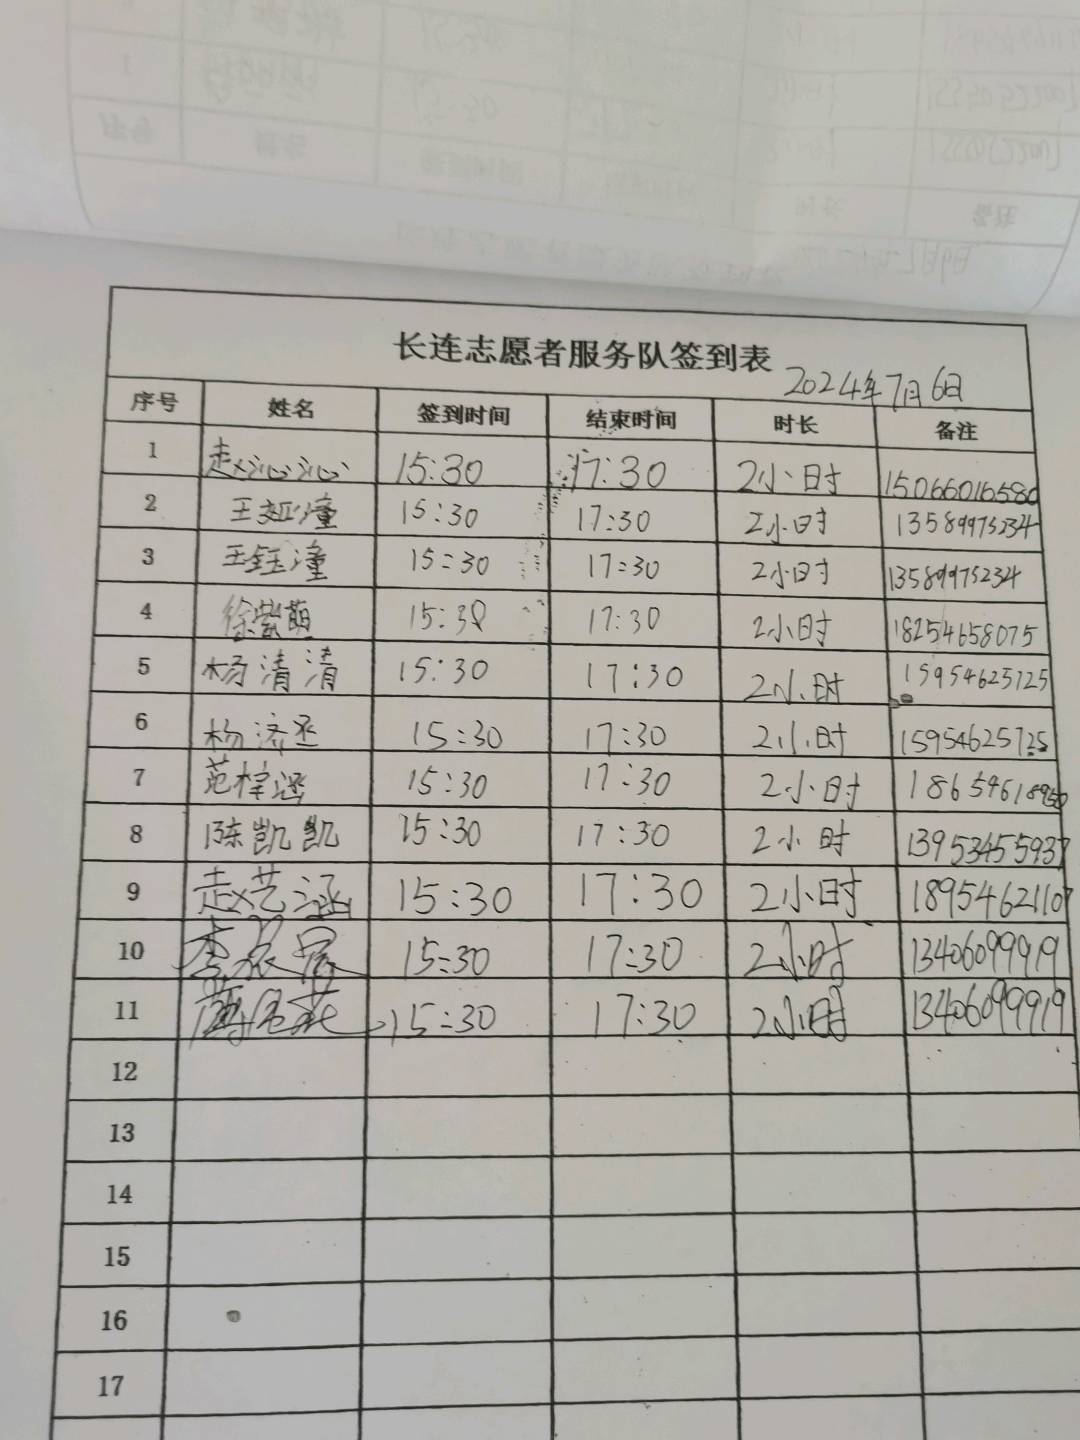 长连志愿者服务队签到表
2024年7月6日
序号 姓名 签到时间 结束时间 时长 备注
1 赵沁沁 15:30 17:30 2小时 15066016580
2 王 潼 15:30 17:30 2小时 13589975234
3 王钰潼 15:30 17:30 2小时 13589975234
4 徐紫萌 15:30 17:30 2小时 18254658075
5 杨清清 15:30 17:30 2小时 15954625725
6 杨济丞 15:30 17:30 2小时 15954625725
7 范梓涵 15:30 17:30 2小时 18654618950
8 陈凯凯 15:30 17:30 2小时 13953455937
9 赵艺涵 15:30 17:30 2小时 18954621107
10 李 15:30 17:30 2小时 13406099919
11 15:30 17:30 2小时 13406099919
12
13
14
15
16
17